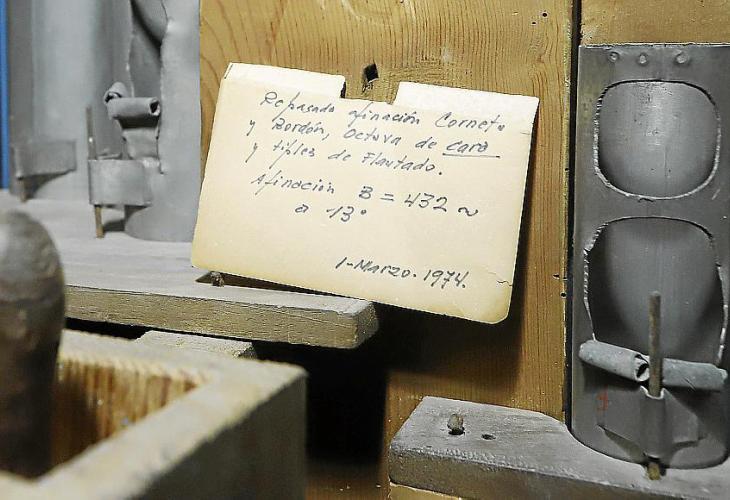 Repasado afinación Corneta
y Bordón, Octava de cara
y tiples de Flautado.
Afinación B = 432 ~
a 13°
1-Marzo-1974.